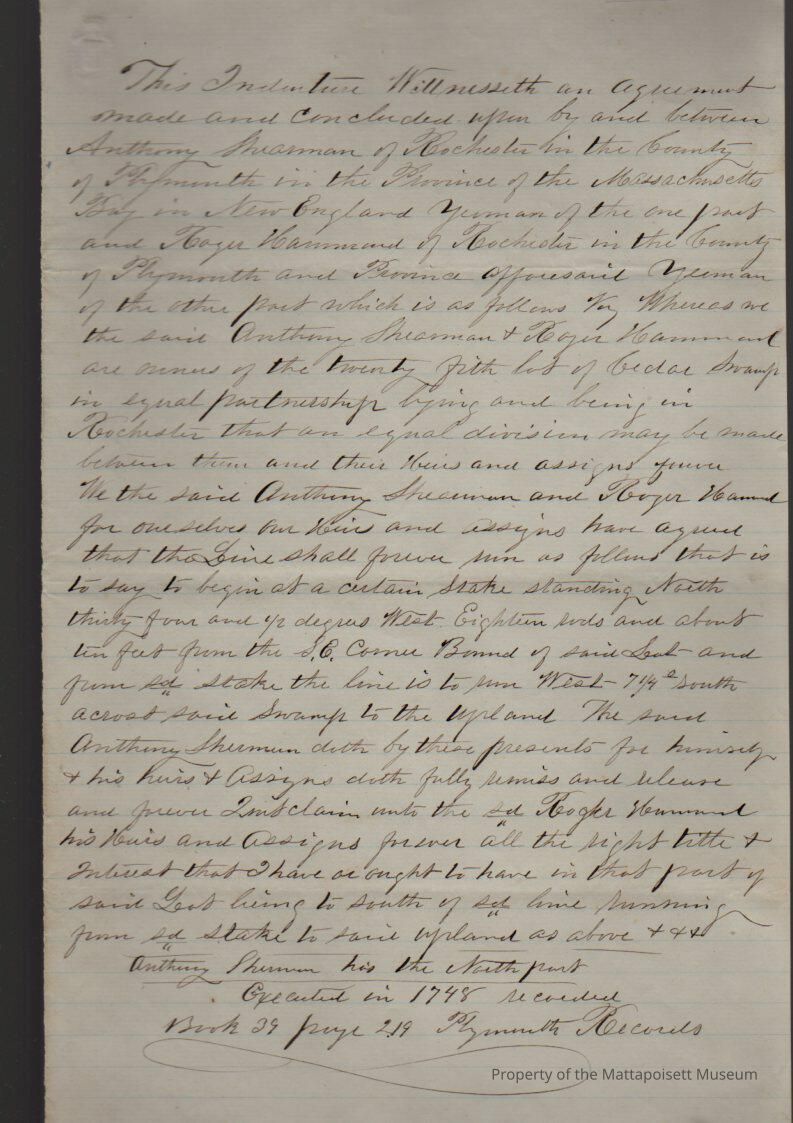 This Indenture Wittnesseth an Agreement
made and concluded upon by and between
Anthony Shearman of Rochester in the County
of Plymouth in the Province of the Massachusetts
Bay in New England Yeoman of the one part
and Roger Hammond of Rochester in the County
of Plymouth and Province afforesaid Yeoman
of the other part which is as follows Viz Whereas we
the said Anthony Shearman & Roger Hammond
are owners of the twenty fifth lot of Cedar Swamp
in equal partnership lying and being in
Rochester that an equal division may be made
between them and their Heirs and assigns forever
We the said Anthony Shearman and Roger Hammond
for ourselves our Heirs and assigns have agreed
that the Line shall forever run as follows that is
to say to begin at a certain stake standing North
thirty four and 1/2 degrees West Eighteen rods and about
ten feet from the S.E. Corner Bound of said Lot and
from sd stake the line is to run West South
acrost said Swamp to the upland The said
Anthony Sherman doth by these presents for himself
& his heirs & Assigns doth fully remiss and release
and forever Quitclaim unto the sd Roger Hammond
his Heirs and Assigns forever all the right title &
Interest that I have or ought to have in that part of
said Lot lying to south of sd line running
from sd stake to said upland as above & & &
Anthony Sherman has the North part
Executed in 1748 recorded
Book 39 page 219 Plymouth Records
Property of the Mattapoisett Museum